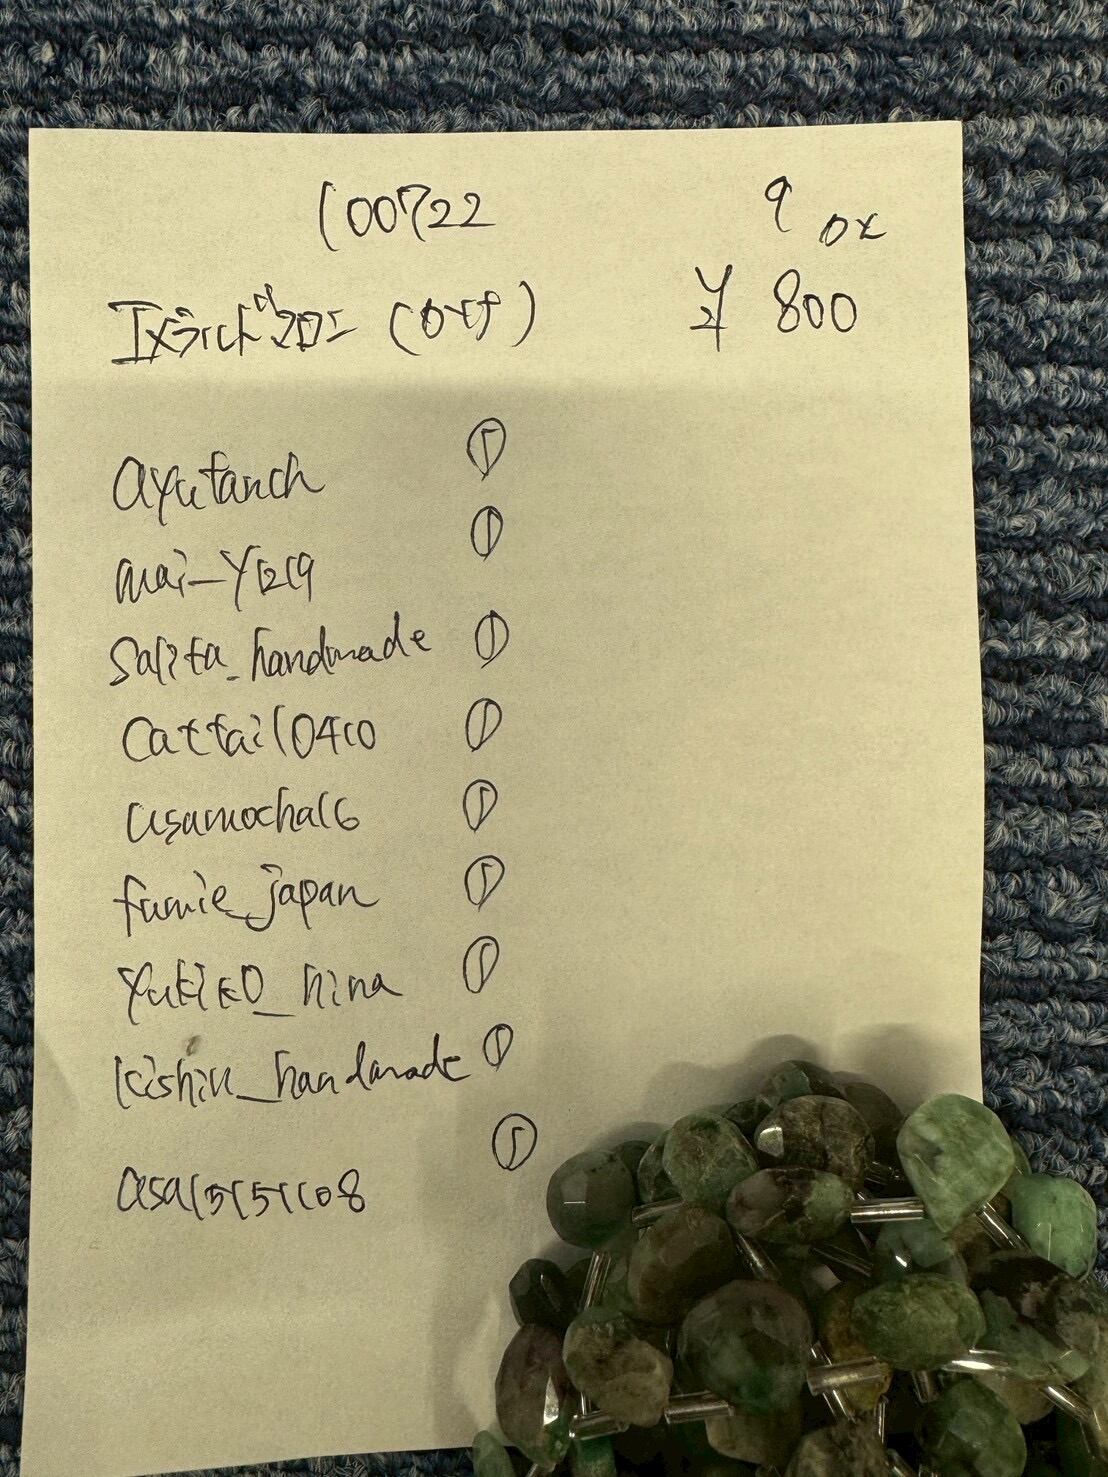 100722 9 ox
エメラルドマカロン (0xf) ¥ 800
ayutanch ①
mai_y1219 ①
salita_handmade ①
cattail0410 ①
usamocha16 ①
fumie_japan ①
yukiko_hina ①
kishin_handmade ①
asa15151108 ①